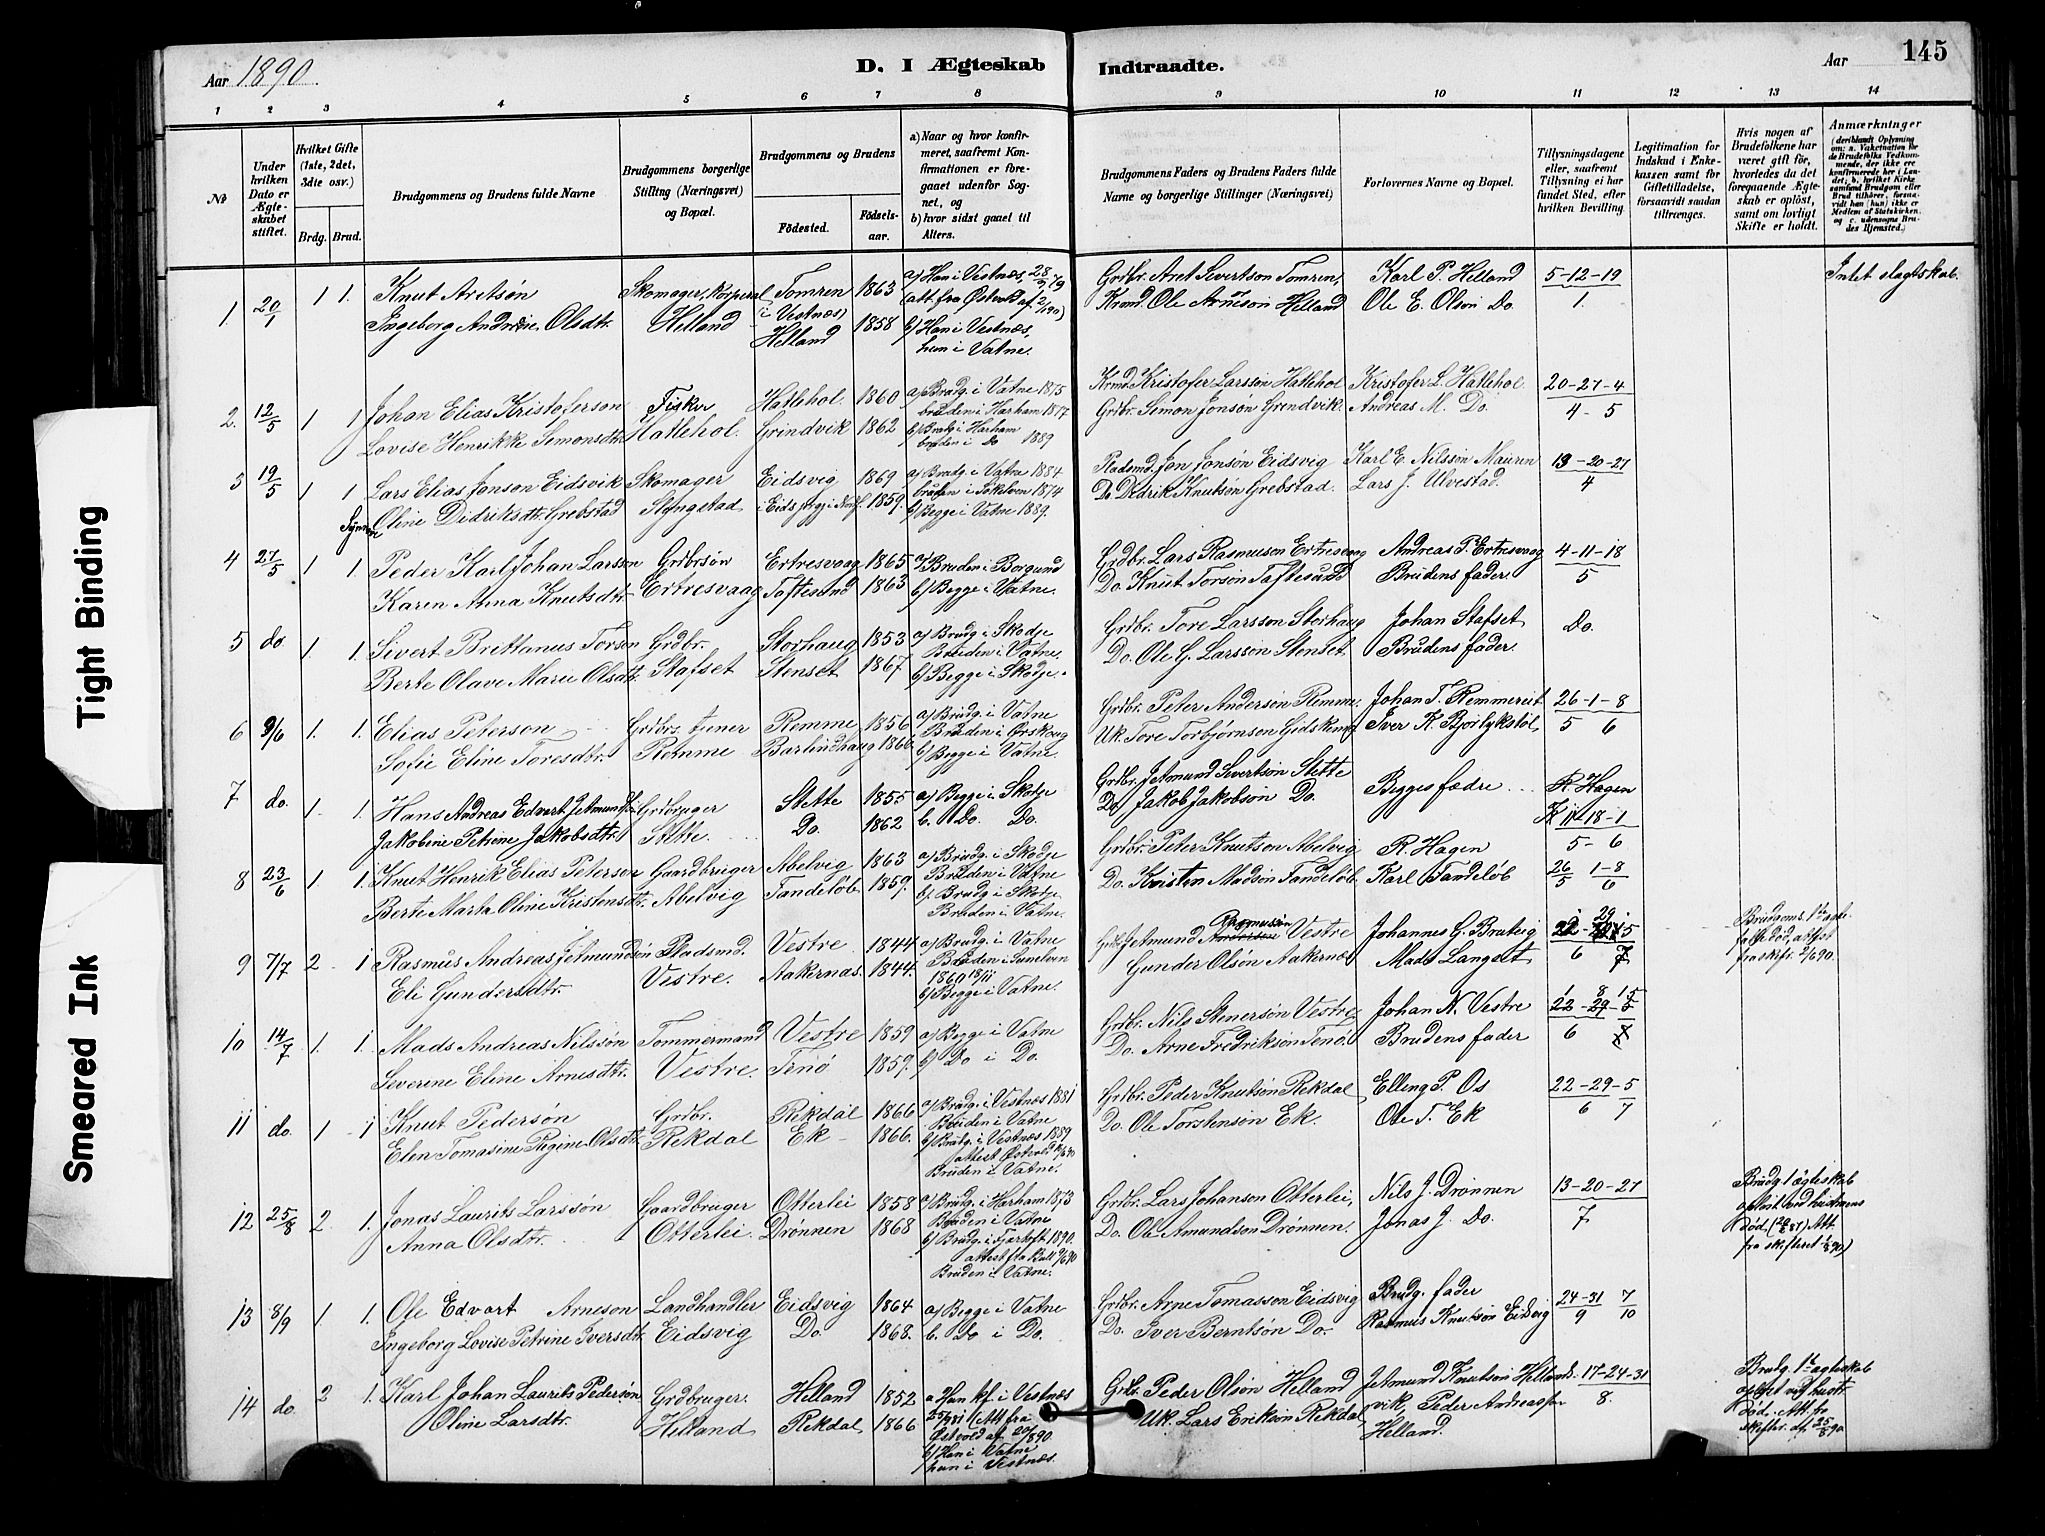 Aar 1890.
D. I Ægteskab Indtraadte.
Aar 145
1 2 3 4 5 6 7 8 9 10 11 12 13 14
№
Under hvilken Dato er Ægteskabet stiftet.
Hvilket Gifte (1ste, 2det, 3die osv.)
Brdg. Brud.
Brudgommens og Brudens fulde Navne
Brudgommens borgerlige Stilling (Næringsvei) og Bopæl.
Brudgommens og Brudens
Födested.
Födselsaar.
a) Naar og hvor konfirmeret, saafremt Konfirmationen er foregaaet udenfor Sognet, og
b) hvor sidst gaaet til Alters.
Brudgommens Faders og Brudens Faders fulde Navne og borgerlige Stillinger (Næringsvei)
Forlovernes Navne og Bopæl.
Tillysningsdagene eller, saafremt Tillysning ei har fundet Sted, efter hvilken Bevilling.
Legitimation for Indskud i Enkekassen samt for Giftetilladelse, forsaavidt saadan tiltrænges.
Hvis nogen af Brudefolkene har været gift før, hvorledes da det foregaaende Ægteskab er oplöst, samt om lovligt Skifte er holdt.
Anmærkninger (deriblandt Oplysning om: a. Vakcination for de Brudefolks Vedkommende, der ikke ere konfirmerede her i Landet; b. hvilket Kirkesamfund Brudgom eller Brud tilhörer, forsaavidt han (hun) ikke er Medlem af Statskirken, og c. udensogns Brudes Hjemsted.)
1. 20/1 1 1. Knut Aretsøn Skomager, Korporal Tomren 1863 a) Han i Vestnæs, 28/9 79 Grdbr. Aret Sivertson Tomren, Karl P. Helland 5-12-19 Intet slagtskab.
Ingeborg Andrine Olsdtr. Helland (i Vestnæs) Helland 1858 att. fra Østvold af 2/1 90) Krmd. Ole Arneson Helland Ole E. Olson Do. 1.
b) Han i Vestnæs,
hun i Vatne.
2. 12/5 1 1 Johan Elias Kristoferson Fisker Hatlehol. 1860 a) Brudg. i Vatne 1875 Krmd. Kristofer Larsson Hatlehol Kristofer L. Hatlehol 20-27-4
Lovise Henrikke Simonsdtr. Hatlehol. Grindvik 1862 bruden i Harham 1877 Grdbr. Simon Jonsøn Grendvik. Andreas M. Do. 4-5
b) Brudg. i Harham
bruden i Do 1889
3 19/5 1 1 Lars Elias Jonson Eidsvik Skomager Eidsvig 1869 a) Brudg. i Vatne 1884 Pladsmd. Jon Jonsøn Eidsvig Karl E. Nilsson Mauren 13-20-27
Oline Didriksdtr. Grebstad 1859. bruden i Søkelven 1874 Do Didrik Knutsøn Grebstad. Lars J. Ulvestad. 4
b) Begge i Vatne 1889.
4 27/5 1 1. Peder Karl Johan Larsson Grdbrsøn Ertresvaag 1865 a) Bruden i Borgund Grdbr. Lars Rasmuson Ertresvaag Andreas P. Ertresvaag 4-11-18
Karen Anna Knutsdtr. Ertresvaag Toftesund 1863 b) Begge i Vatne. Do. Knut Torsøn Taftesund Brudens fader. 5
5 do 1 1. Sivert Brittanus Torson Grdbr. Storhaug 1853 a) Brudg i Skodje Grdbr. Tore Larsson Storhaug Johan Stafset Do.
Berte Olave Marie Olsdtr. Stafset Stenset 1867 Bruden i Vatne. Do. Ole G. Larsson Stenset Brudens fader.
b) Begge i Skodje.
6 9/6 1. 1. Elias Peterson Remme 1856 a) Brudg. i Vatne Grdbr. Peter Andersøn Remme, Johan T. Remmereit 26-1-8
Sofie Eline Toresdtr. Remme Barlindhaug 1866 Bruden i Ørskoug Uk. Tore Torbjørnson Iver K. Bjørlykstøl 5 6
b) Begge i Vatne.
7 do. 1. 1. Hans Andreas Edvart Jetmundsøn Grdbruger Stette 1855 a) Begge i Skodje Grdbr. Jetmund Sivertsøn Stette Begges fædre R. Hagen
Jakobine Petrine Jakobsdtr. Stette. Do. 1862 b. Do. Do. Do Jakob Jakobsøn Do. 11-18-1
5-6
8 23/6 1 1. Knut Henrik Elias Peterson Gaardbruger Abelvig 1863 a) Brudg. i Skodje Grdbr. Peter Knutson Abelvig R. Hagen 26/5 1-8/6
Berte Marta Oline Kristensdtr. Abelvig Tandeløb 1859. Bruden i Vatne Do. Kristen Madsøn Tandeløb. Karl Tandeløb
b) Brudg. i Skodje
Bruden i Vatne.
9 7/7 2 1 Rasmus Andreas Jetmundsøn Pladsmd. Vestre 1844 a) Brudg. i Vatne Jetmund Rasmussøn Vestre Johannes G. Brubvig 22-29-5
Eli Gundersdtr. Vestre. Aakernæs. 1844. Bruden i Sunelven Gunder Olsøn Aakernæs Mads Langset 6 7
1860 18/11
b) Begge i Vatne.
10 14/7 1. 1. Mads Andreas Nilssøn Tømmermand Vestre 1859 a) Begge i Vatne Grdbr. Nils Stenersøn Vestre Johan N. Vestre 22-29-5
Severine Eline Arnesdtr. Vestre. Tenø 1859. b) Do i Do. Do. Arne Fredriksøn Tenø. Brudens fader 6 7
11 do. 1 1 Knut Pedersøn Grdbr. Rekdal 1866 a) Brudg. i Vestnæs 1881 Grdbr. Peder Knutsøn Rekdal Elling P. Os 22-29-5
Elen Tomasine Regine Olsdtr. Rekdal Ek 1866. Bruden i Vatne Do. Ole Torstenson Ek. Ole T. Ek 6 7
b) Brudg. i Vestnæs 1889
attest Østvold
Bruden i Vatne.
12 25/8 2. 1. Jonas Laurits Larssøn Gaardbruger Otterlei 1858 a) Brudg. i Harham 1873 Grdbr. Lars Johanson Otterlei, Nils J. Drønnen 13-20-27 Brudg 1 ægteskab
Anna Olsdtr. Otterlei. Drønnen 1868 Bruden i Vatne Do. Ole Amundsen Drønnen. Jonas J. Do. 7 opløst ved hustruens
b) Brudg. i Fjørtoft 1890. død. Att.
Bruden i Vatne. fra skifteret
13 8/9 1. 1. Ole Edvart Arneson Landhandler Eidsvig 1864 a) Begge i Vatne Grdbr. Arne Tomasson Eidsvig Brudg. fader 24-31 7
Ingeborg Lovise Petrine Iversdtr. Eidsvig Do. 1868. b. Do i Do. Do. Iver Berntsøn Do. Rasmus Knutsøn Eidsvig 9 10
14 do. 2 1. Karl Johan Laurits Pedersøn Grdbruger. Helland 1852 a Han kf. i Vestnæs Grdbr. Peder Olsøn Helland Jetmund Knutson Hellands 17-24-31 Brudg. 1ste ægteskab
Oline Larsdtr. Helland Rekdal 1866 Att fra Uk. Lars Erikson Rekdal vik, Peder Andreassøn 8. opløst ved hustr.
Østvold af 20/8 90 Helland. død. Att. fr
b) Han i Vatne skifter. af 25/8 90
hun i Vestnæs.
Tight Binding
Smeared Ink